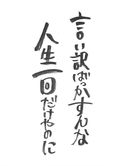 言い訳ばっかすんな
人生一回だけやのに